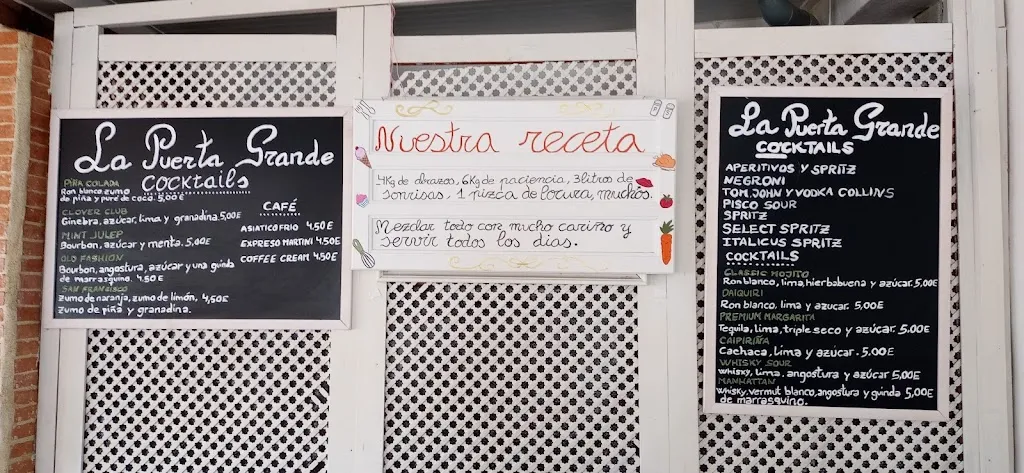 La Puerta Grande
COCKTAILS
PIÑA COLADA
Ron blanco, zumo
de piña y puré de coco. 5,00€
CLOVER CLUB
Ginebra, azúcar, lima y granadina. 5,00€
MINT JULEP
Bourbon, azúcar y menta. 5,00€
OLD FASHION
Bourbon, angostura, azúcar y una guinda
de marrasquino. 4,50€
SAN FRANCISCO
Zumo de naranja, zumo de limón, 4,50€
zumo de piña y granadina.
CAFÉ
ASIATICO FRIO 4,50€
EXPRESO MARTINI 4,50€
COFFEE CREAM 4,50€
Nuestra receta
4Kg de abrazos, 6Kg de paciencia, 3 litros de
sonrisas, 1 pizca de locura, muchos
Mezclar todo con mucho cariño y
servir todos los días.
La Puerta Grande
COCKTAILS
APERITIVOS Y SPRITZ
NEGRONI
TOM, JOHN Y VODKA COLLINS
PISCO SOUR
SPRITZ
SELECT SPRITZ
ITALICUS SPRITZ
COCKTAILS
CLASSIC MOJITO
Ron blanco, lima, hierbabuena y azúcar. 5,00€
DAIQUIRI
Ron blanco, lima y azucar. 5,00€
PREMIUM MARGARITA
Tequila, lima, triple seco y azúcar. 5.00€
CAIPIRIÑA
Cachaca, lima y azúcar. 5.00€
WHISKY SOUR
Whisky, lima, angostura y azúcar 5,00€
MANHATTAN
Whisky, vermut blanco, angostura y guinda 5,00€
de marrasquino.